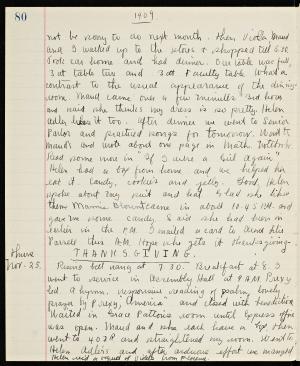 80
1909
not be sorry to do next month. Then Viola, Maud
and I walked up to the stores & shopped till 5:30.
Took car home and had dinner. Our table was full,
3 at table two and 3 at Faculty table. What a
contrast to the usual appearance of the dining
room. Maud came over a few minutes and Nora
and said she thinks my dress is so pretty. Helen
Adler likes it too. After dinner we went to Senior
Parlor and practiced songs for tomorrow. Went to
Maud's and wrote about one page in Math. Notebook.
Read some more in "If I were a Girl again".
Helen had a box from home and we helped her
eat it. Candy, cookies and jelly. Good. Helen
spoke about my suit and hat. Glad she likes
them. Mamie Blount came in about 10:45 P.M. and
gave me some candy. Said she had been in
earlier in the P.M. I mailed a card to Aunt Ella
Parrell this A.M. Hope she gets it thanksgiving.
THANKSGIVING.
Thurs.
Nov. 25.
Rising bell rang at 7:30. Breakfast at 8. I
went to service in Assembly Hall at 9 A.M. Prexy
led. A hymn, responsive reading of psalm, lovely
prayer by Prexy, "America" and closed with benediction.
Waited in Grace Patton's room until Express office
was open. Maud and she each have a box. Then
went to 402 and straightened my room. Went to
Helen Adler's and after arduous effort we managed